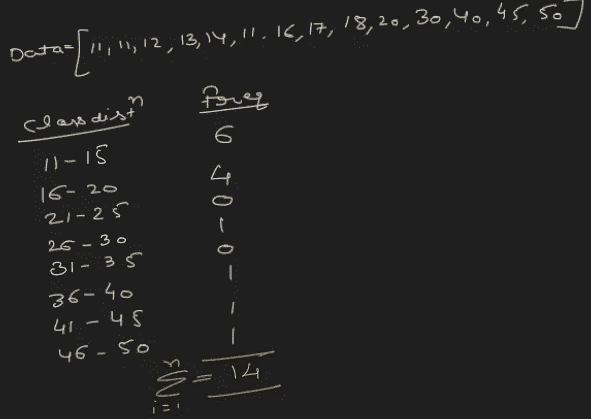 Data=[11, 11, 12, 13, 14, 11. 16, 17, 18, 20, 30, 40, 45, 50]
Class distⁿ Freq
11-15 6
16-20 4
21-25 0
26-30 1
31-35 0
36-40 1
41-45 1
46-50 1
n
Σ = 14
i=1